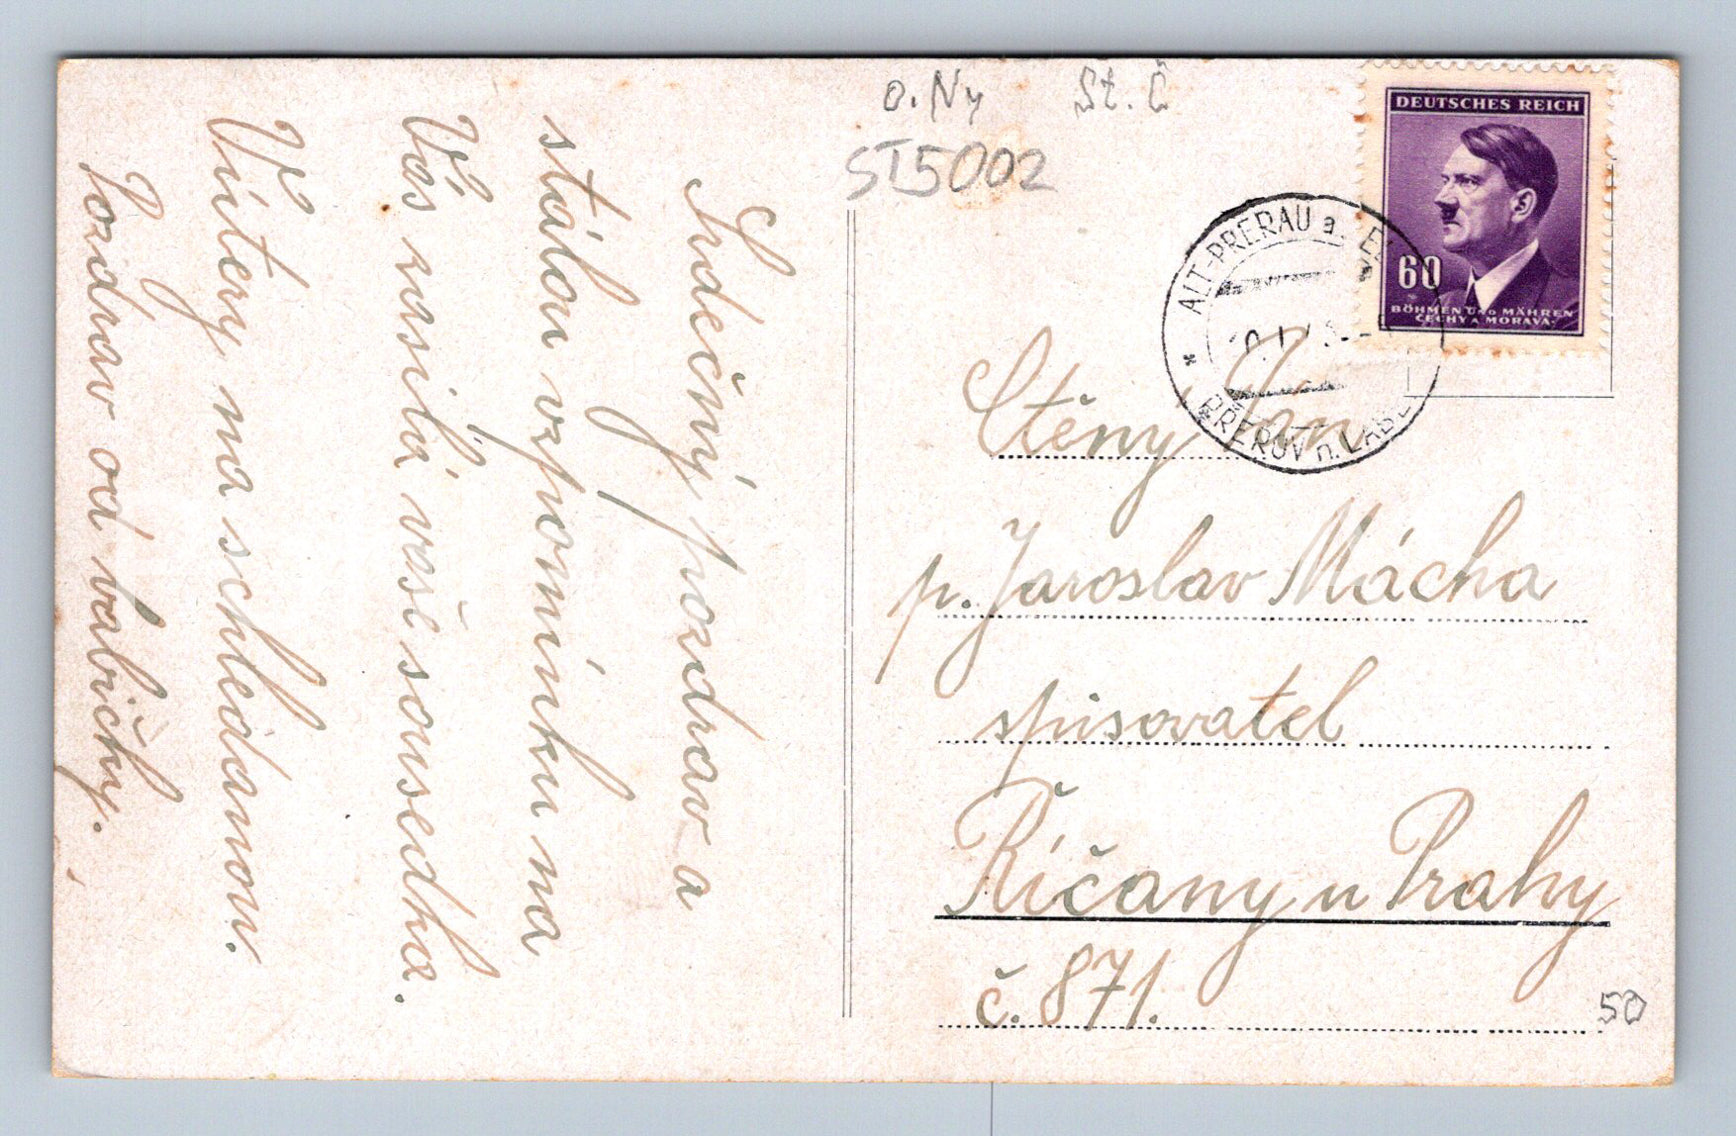 o. Ny St. Č
ST5002
DEUTSCHES REICH
60
BÖHMEN UND MÄHREN
ČECHY A MORAVA
ALT-PRERAU a.
PŘEROV n. LABE
Srdečný pozdrav a
stálou vzpomínku na
Vás zasílá vaše sousedka.
V úterý na schledanou.
Pozdrav od babičky.
Ctěný Pan
p. Jaroslav Mácha
spisovatel
Říčany u Prahy
č. 871.
50